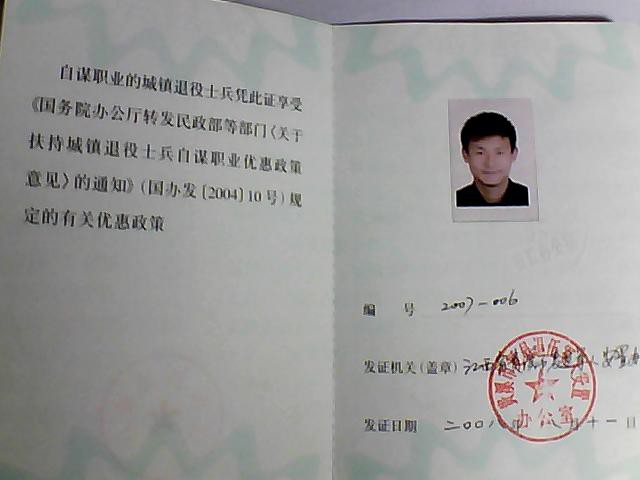 自谋职业的城镇退役士兵凭此证享受
《国务院办公厅转发民政部等部门〈关于
扶持城镇退役士兵自谋职业优惠政策
意见〉的通知》（国办发〔2004〕10号）规
定的有关优惠政策
编 号 2007-006
发证机关（盖章） 江西省
办公室
发证日期 二00八 十一日